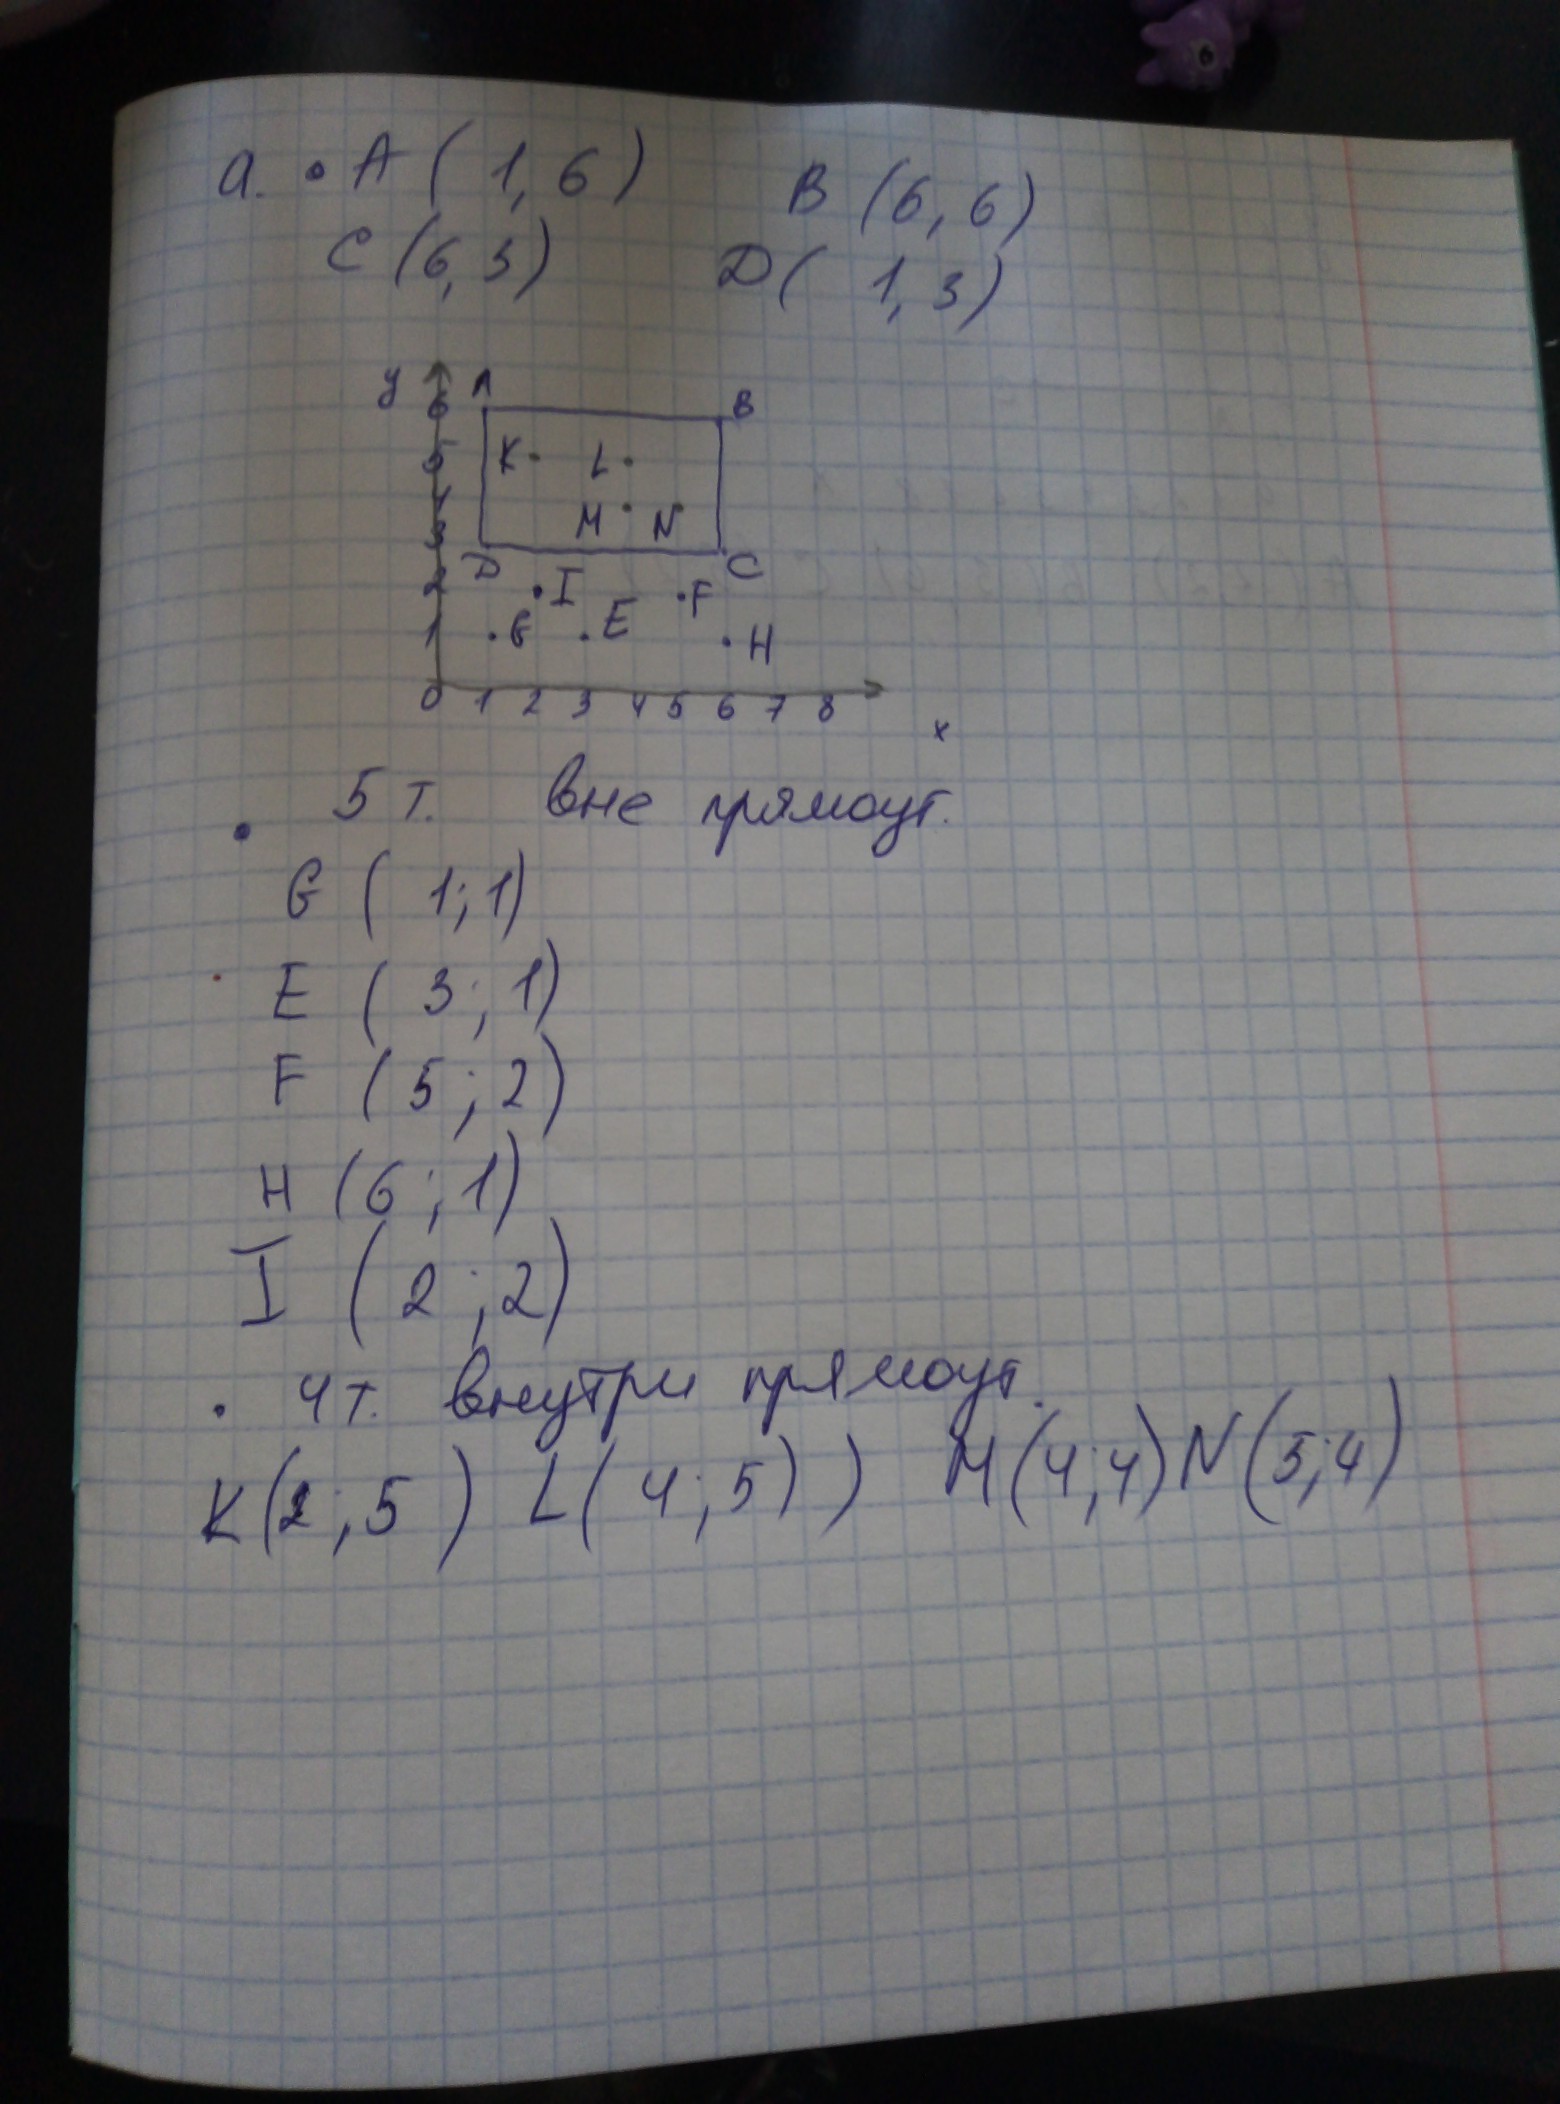 a. • A ( 1, 6 ) B ( 6, 6 )
C ( 6, 3 ) D ( 1, 3 )
y A
6 B
5 K L
4 M N
3
D C
2 I F
1 G E H
0 1 2 3 4 5 6 7 8
x
• 5 т. вне прямоуг.
G ( 1; 1 )
E ( 3; 1 )
F ( 5; 2 )
H ( 6; 1 )
I ( 2; 2 )
• 4 т. внутри прямоуг.
K ( 2; 5 ) L ( 4; 5 ) ) M ( 4; 4 ) N ( 5; 4 )